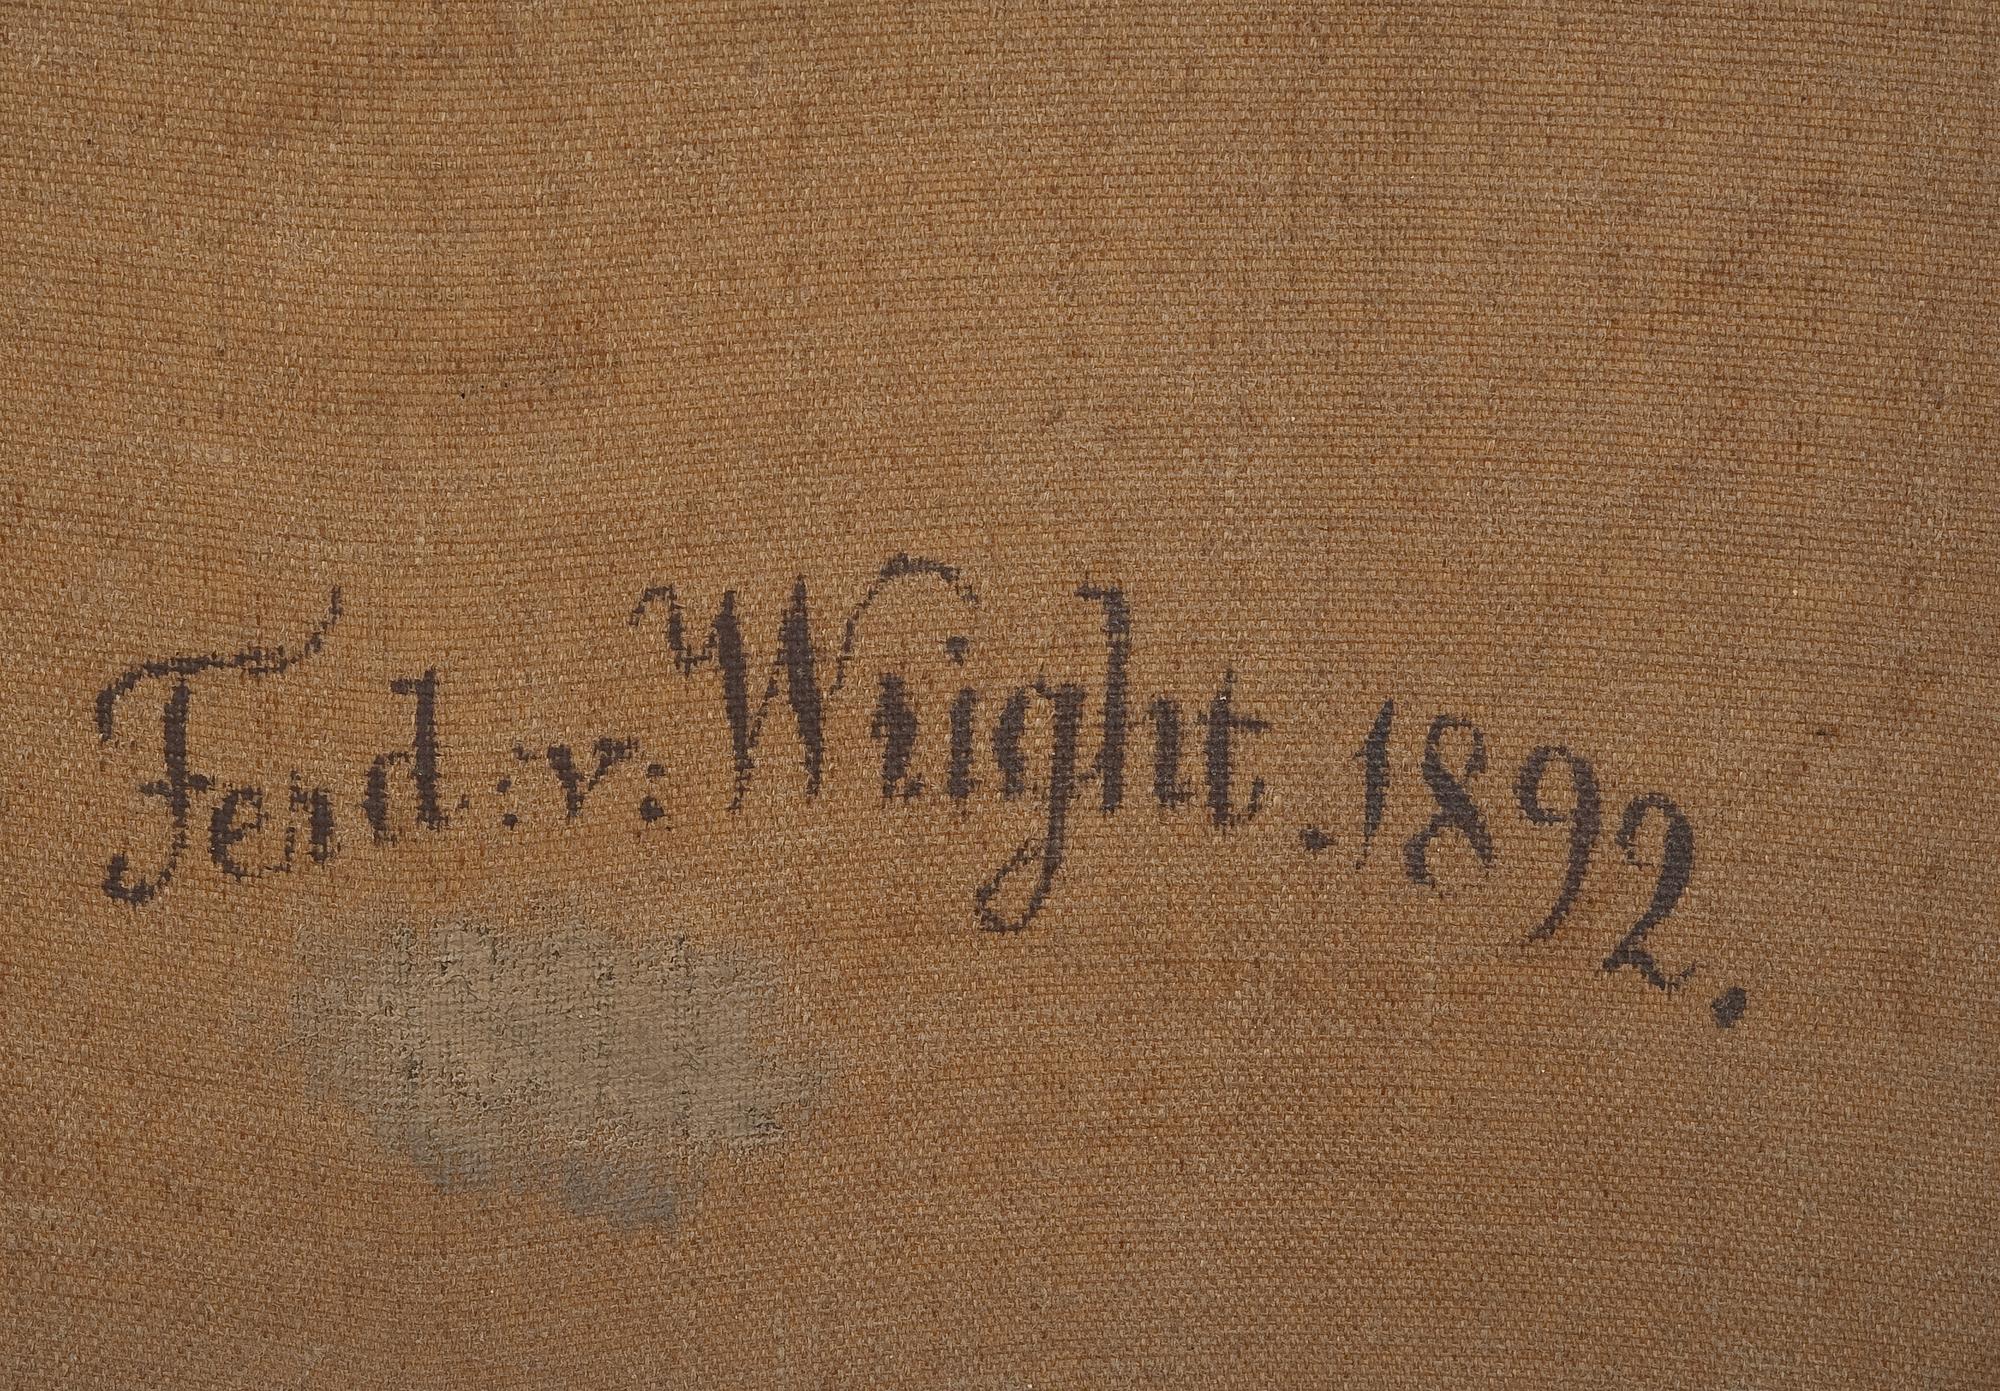 Ferd.:v: Wright.1892.